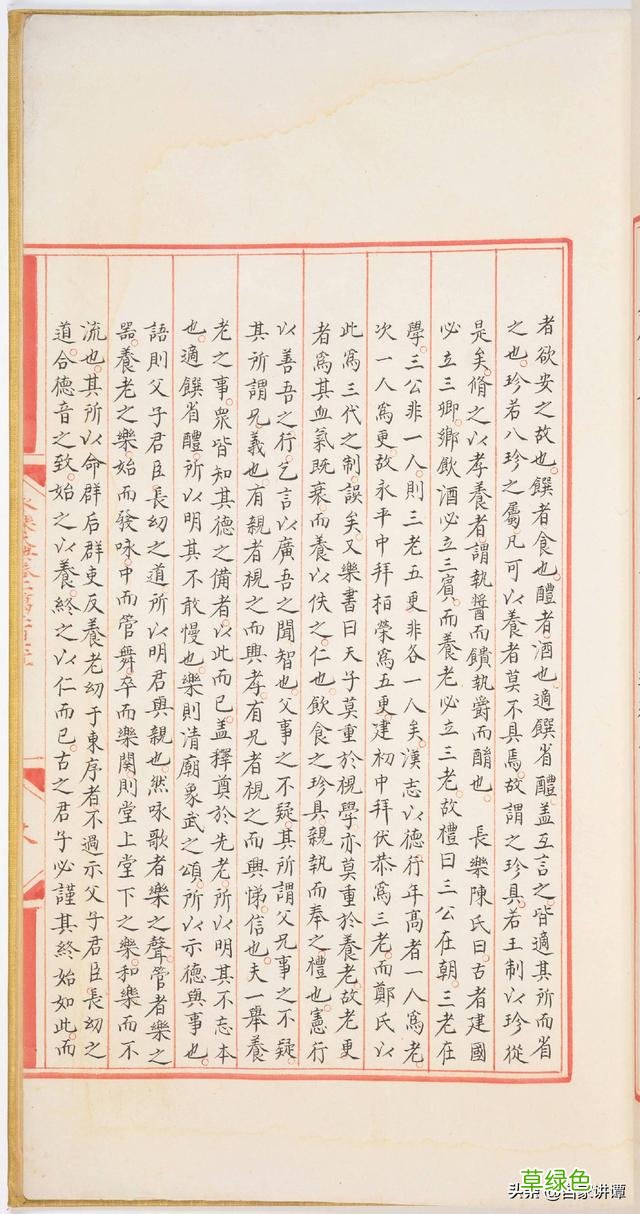 者欲安之故也饌者食也醴者酒也適饌省醴蓋互言之皆適其所而省
之也珍若八珍之屬凡可以養者莫不具焉故謂之珍具若王制以珍從
是矣脩之以孝養者謂執醬而饋執爵而酳也　長樂陳氏曰古者建國
必立三卿鄉飲酒必立三賓而養老必立三老故禮曰三公在朝三老在
學三公非一人則三老五更非各一人矣漢志以德行年高者一人爲老
次一人爲更故永平中拜桓榮爲五更建初中拜伏恭爲三老而鄭氏以
此爲三代之制誤矣又樂書曰天子莫重於視學亦莫重於養老故老更
者爲其血氣既衰而養以佚之仁也飲食之珍具親執而奉之禮也憲行
以善吾之行乞言以廣吾之聞智也父事之不疑其所謂父兄事之不疑
其所謂兄義也有親者視之而興孝有兄者視之而興悌信也夫一舉養
老之事衆皆知其德之備者以此而已蓋釋奠於先老所以明其不忘本
也適饌省醴所以明其不敢慢也樂則清廟象武之頌所以示德與事也
語則父子君臣長幼之道所以明君與親也然咏歌者樂之聲管者樂之
器養老之樂始而發咏中而管舞卒而樂闋則堂上堂下之樂和樂而不
流也其所以命群后群吏反養老幼于東序者不過示父子君臣長幼之
道合德音之致始之以養終之以仁而已古之君子必謹其終始如此而
草绿色
头条 @百家讲谭